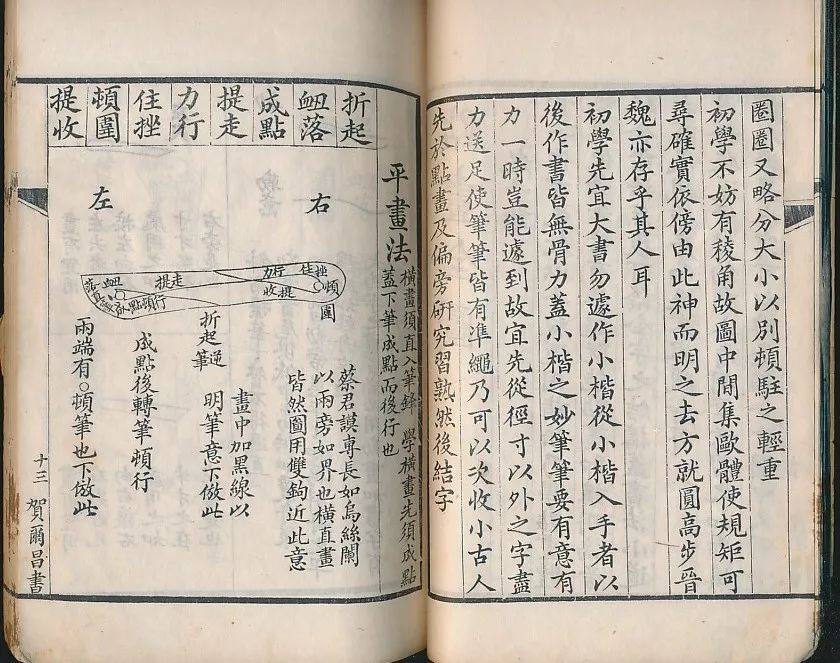 圈圈又略分大小以別頓駐之輕重
初學不妨有稜角故圖中間集歐體使規矩可
尋確實依傍由此神而明之去方就圓高步晉
魏亦存乎其人耳
初學先宜大書勿遽作小楷從小楷入手者以
後作書皆無骨力蓋小楷之妙筆筆要有意有
力一時豈能遽到故宜先從徑寸以外之字盡
力送足使筆筆皆有凖繩乃可以次收小古人
先於點畫及偏旁研究習熟然後結字
平畫法
橫畫須直入筆鋒 學橫畫先須成點
蓋下筆成點而後行也
折起
衄落
成點
提走
力行
住挫
頓圍
提收
右
左
衄
提走
力行
住
挫
頓
圍
提收
行
頓
點
兩端有○頓筆也下倣此
成點後轉筆頓行
折起
逆筆
明筆意下倣此
畫中加黑線以
皆然圖用雙鉤近此意
以兩旁如界也橫直畫
蔡君謨專長如烏絲闌
十三
賀爾昌書